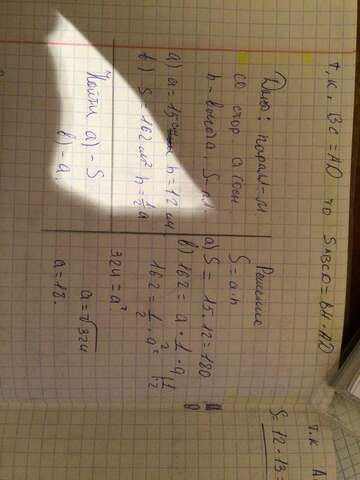 т.к. BC = AD то SABCD = BH · AD
Дано: парал-м
со стор а (осн
h = высота, S - пл.
а) а = 15 см h = 12 см
в) S = 162 см² h = 1/2 а
Найти а) - S
в) - а.
Решение
S = a·h
а) S = 15·12 = 180
в) 162 = a · 1/2 · a | ·2
162 = 1/2 · a² | ·2
324 = a²
a = √324
a = 18.
т.к А
S = 12·13 =